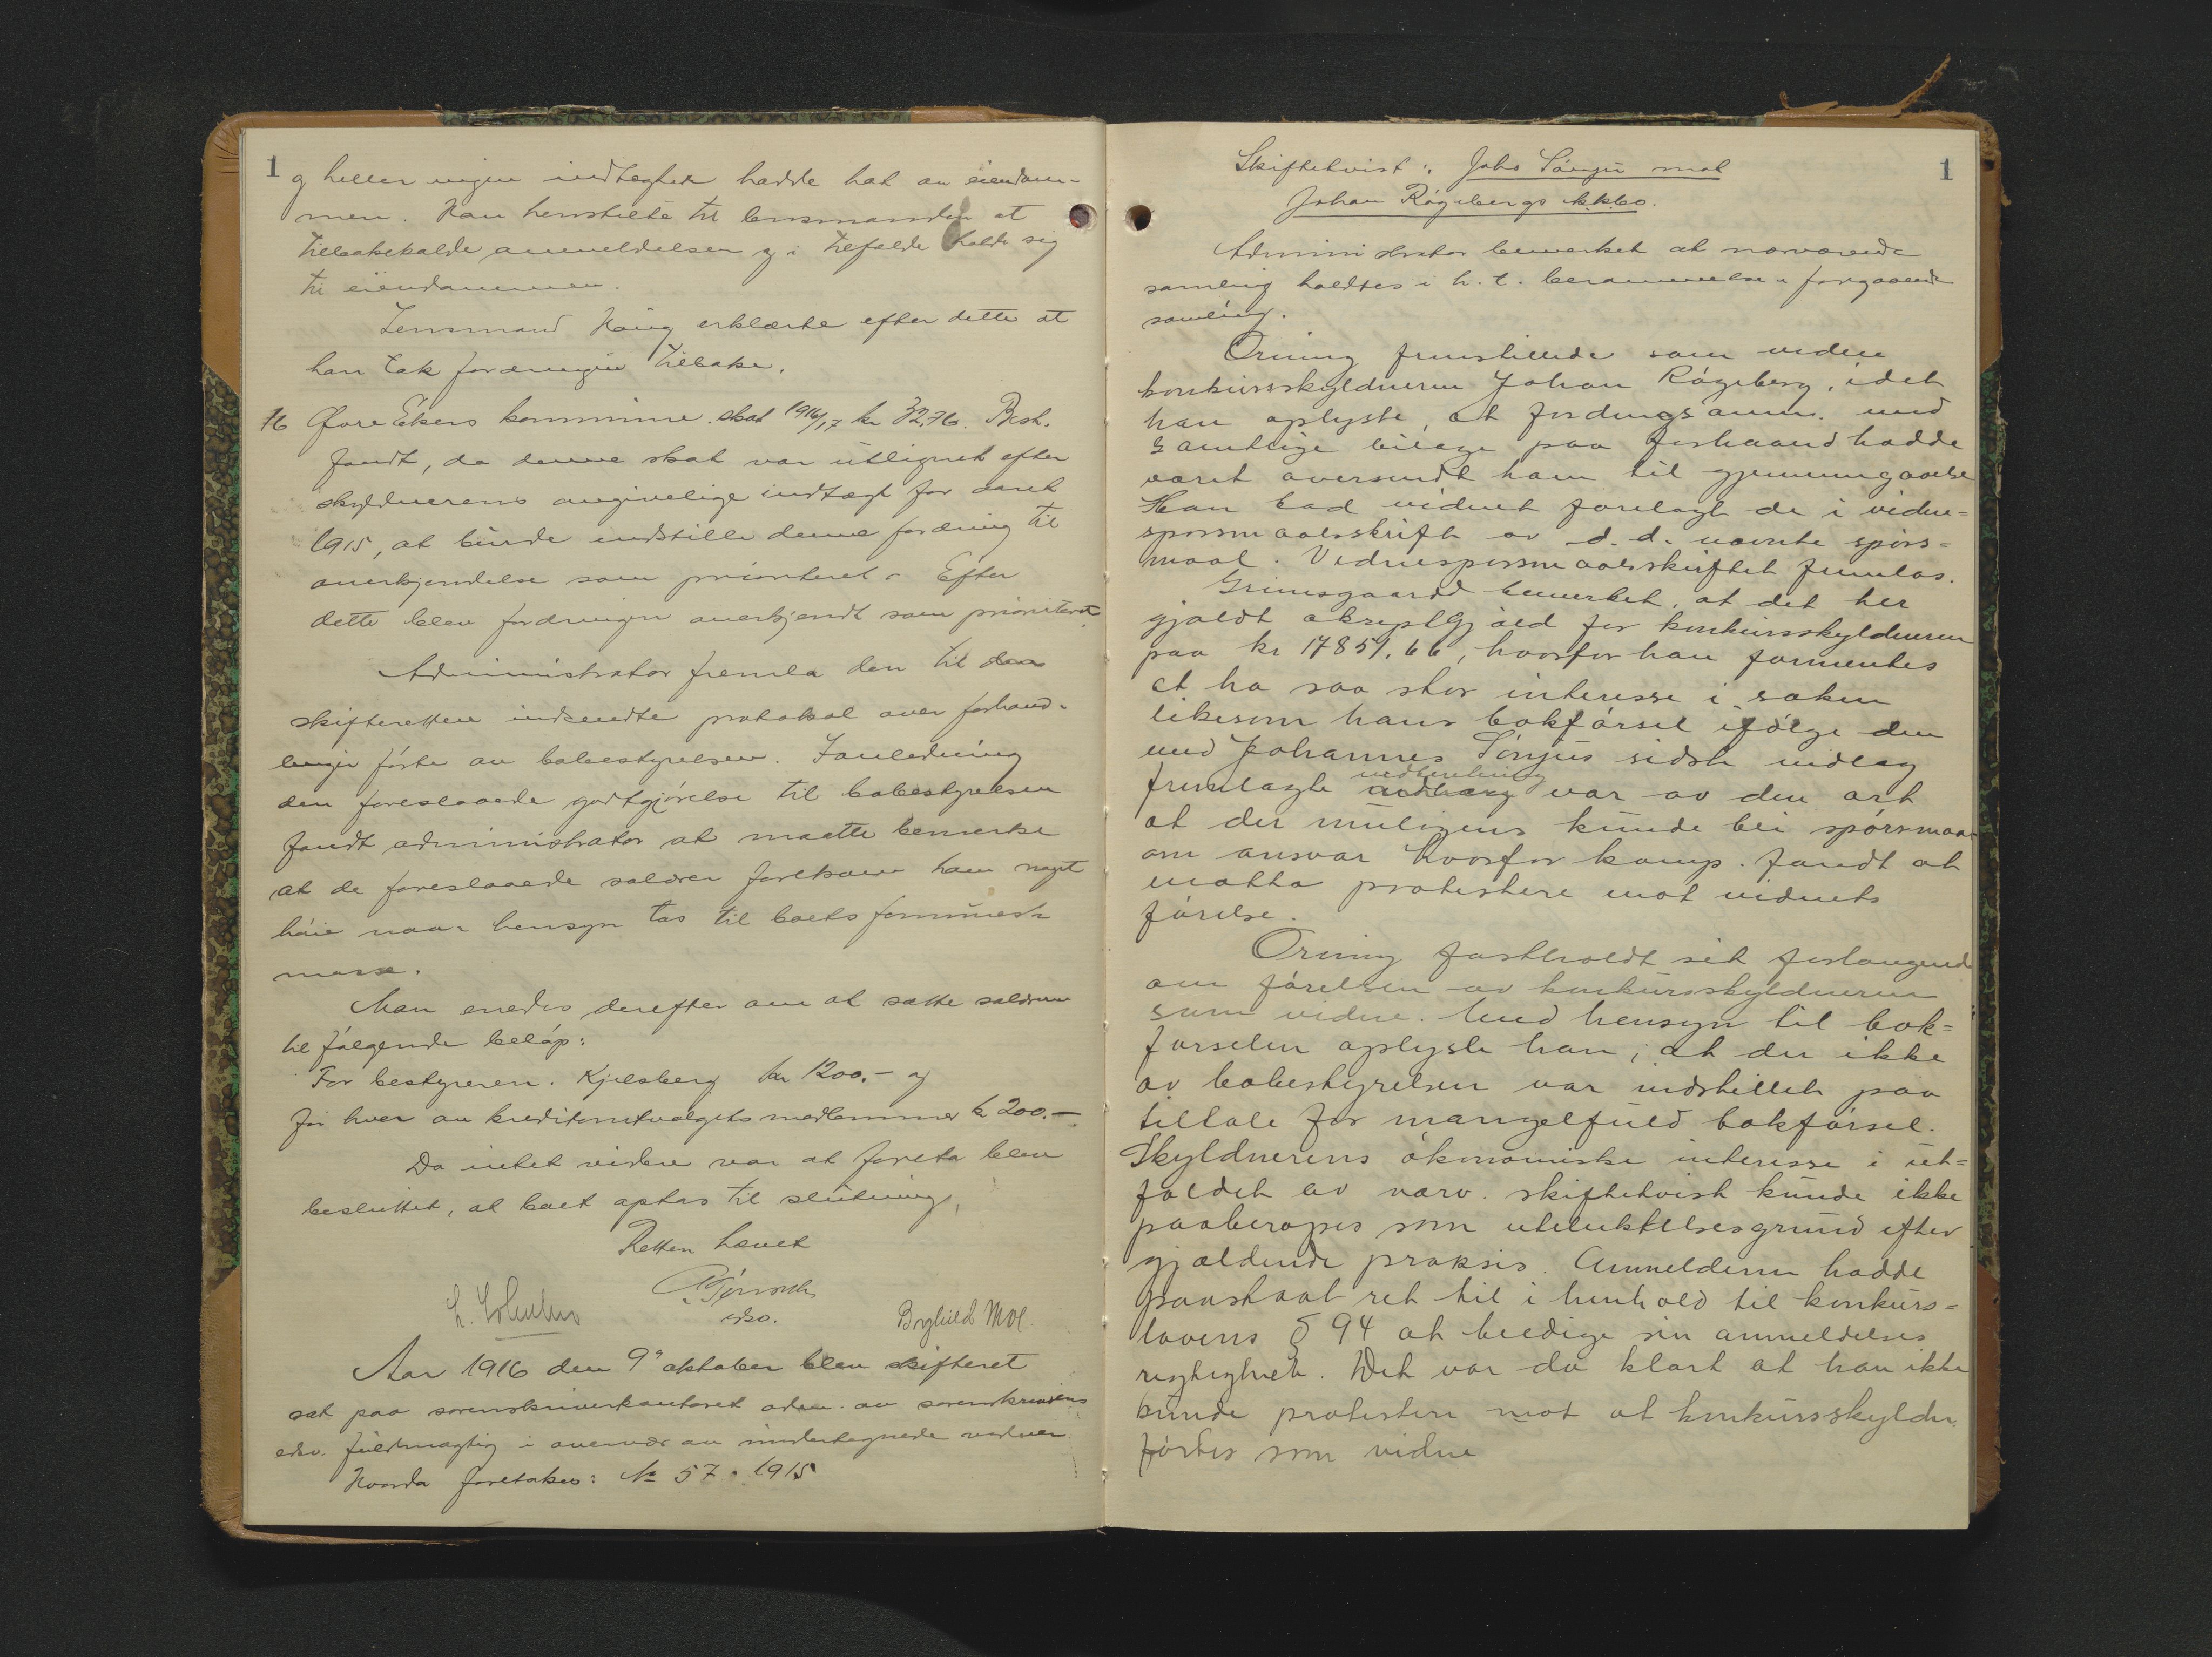 1
g heller ingen indtægter hadde hat av eiendom-
men. Han henstilte til lensmanden at
tilbakekalde anmeldelsen og i tilfælde holde sig
til eiendommen.
Lensmand Haug erklærte efter dette at
han tok fordringen tilbake.
16 Øvre Ekers kommune. skat 1916/17 kr 32,76. Best.
fandt, da denne skat var utlignet efter
skyldnerens angivelige indtægt for aaret
1915, at burde indstille denne fordring til
anerkjendelse som prioritert. Efter
dette blev fordringen anerkjendt som prioritert.
Administrator fremla den til den
skifteretten indsendte protokol over forhand-
linger førte av bobestyrelsen. I anledning
den foreslaaede godtgjørelse til bobestyrelsen
fandt administrator at maatte bemerke
at de foreslaaede salærer forekom ham noget
høie naar hensyn tas til boets formues-
masse.
Man enedes derefter om at sætte salærerne
til følgende beløp:
For bestyreren. Kjelsberg kr 1200.- og
for hver av kreditorutvalgets medlemmer kr 200.-
Da intet videre var at foreta blev
besluttet, at boet optas til slutning.
Retten hævet
edsv.
Brghild Moe.
Aar 1916 den 9' oktober blev skifteret
sat paa sorenskriverkontoret adm. av sorenskriverens
edsv. fuldmægtig i overvær av undertegnede vidner
Hvorda foretokes: № 57. 1915
1
Skiftetvist: Johs Sønju mot
Johan Røgebergs kkbo.
Administrator bemerket at nærværende
samling holdtes i h. t. berammelse i foregaaende
samling.
Orning fremstillede som vidne
konkursskyldneren Johan Røgeberg, idet
han oplyste, at fordringsanm. med
samtlige bilage paa forhaand hadde
været oversendt ham til gjennemgaaelse
Han bad vidnet forelagt de i vidne-
spørsmaalsskrift av d. d. nævnte spørs-
maal. Vidnespørsmaalsskriftet fremlas.
Grimsgaard bemerket, at det her
gjældt akceptgjæld for konkursskyldneren
paa kr 17851.66, hvorfor han formentes
at ha saa stor interesse i saken
likesom hans bokførsel ifølge den
med Johannes Sønjus sidste indlæg
fremlagte var av den art
at der muligens kunde bli spørsmaal
om ansvar hvorfor komp. fandt at
maatte protestere mot vidnets
førelse.
Orning fastholdt sit forlangende
om førelsen av konkursskyldneren
som vidne. Med hensyn til bok-
førselen oplyste han, at der ikke
av bobestyrelsen var indstillet paa
tiltale for mangelfuld bokførsel.
Skyldnerens økonomiske interesse i ut-
faldet av nærv. skiftetvist kunde ikke
paaberopes som utelukkelsesgrund efter
gjældende praksis. Anmelderen hadde
paastaat ret til i henhold til konkurs-
lovens § 94 at beedige sin anmeldelses
rigtighet. Det var da klart at han ikke
kunde protestere mot at konkursskyldn.
førtes som vidne